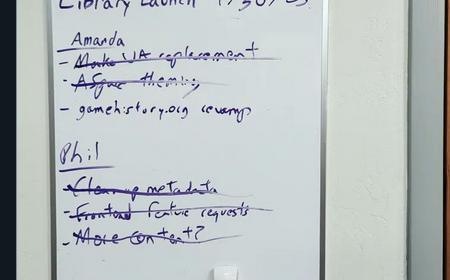 Library Launch 1/30/25
Amanda
- Make UA replacement
- ASpace theming
- gamehistory.org revamp
Phil
- Clean up metadata
- Frontend feature requests
- More content?